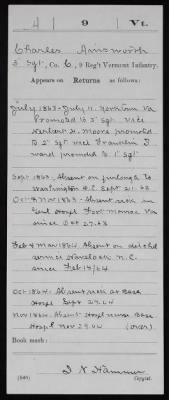 A | 9 | Vt.
Charles Ainsworth
Sgt, Co. C, 9 Reg't Vermont Infantry.
Appears on Returns as follows:
July 1863 - July 11. Yorktown Va
Promoted to 2" Sgt. vice
Herbert H. Moore promoted
to 2" Sgt vice Franklin J
ward promoted to 1" Sgt
Sept 1863 - Absent on furlough to
Washington D.C. Sept 21. 63
Oct & Nov 1863 - Absent sick in
Genl Hospl Fort Monroe Va
since Oct 27. 63
Feb & Mar 1864. Absent on detchd
service Havelock N.C.
since Feb 14/64
Oct 1864 - Absent sick at Base
Hospl Sept 29. 64
Nov 1864 - Absent nurse Base
Hospl Nov 29. 64 (over)
Book mark:
Copyist.